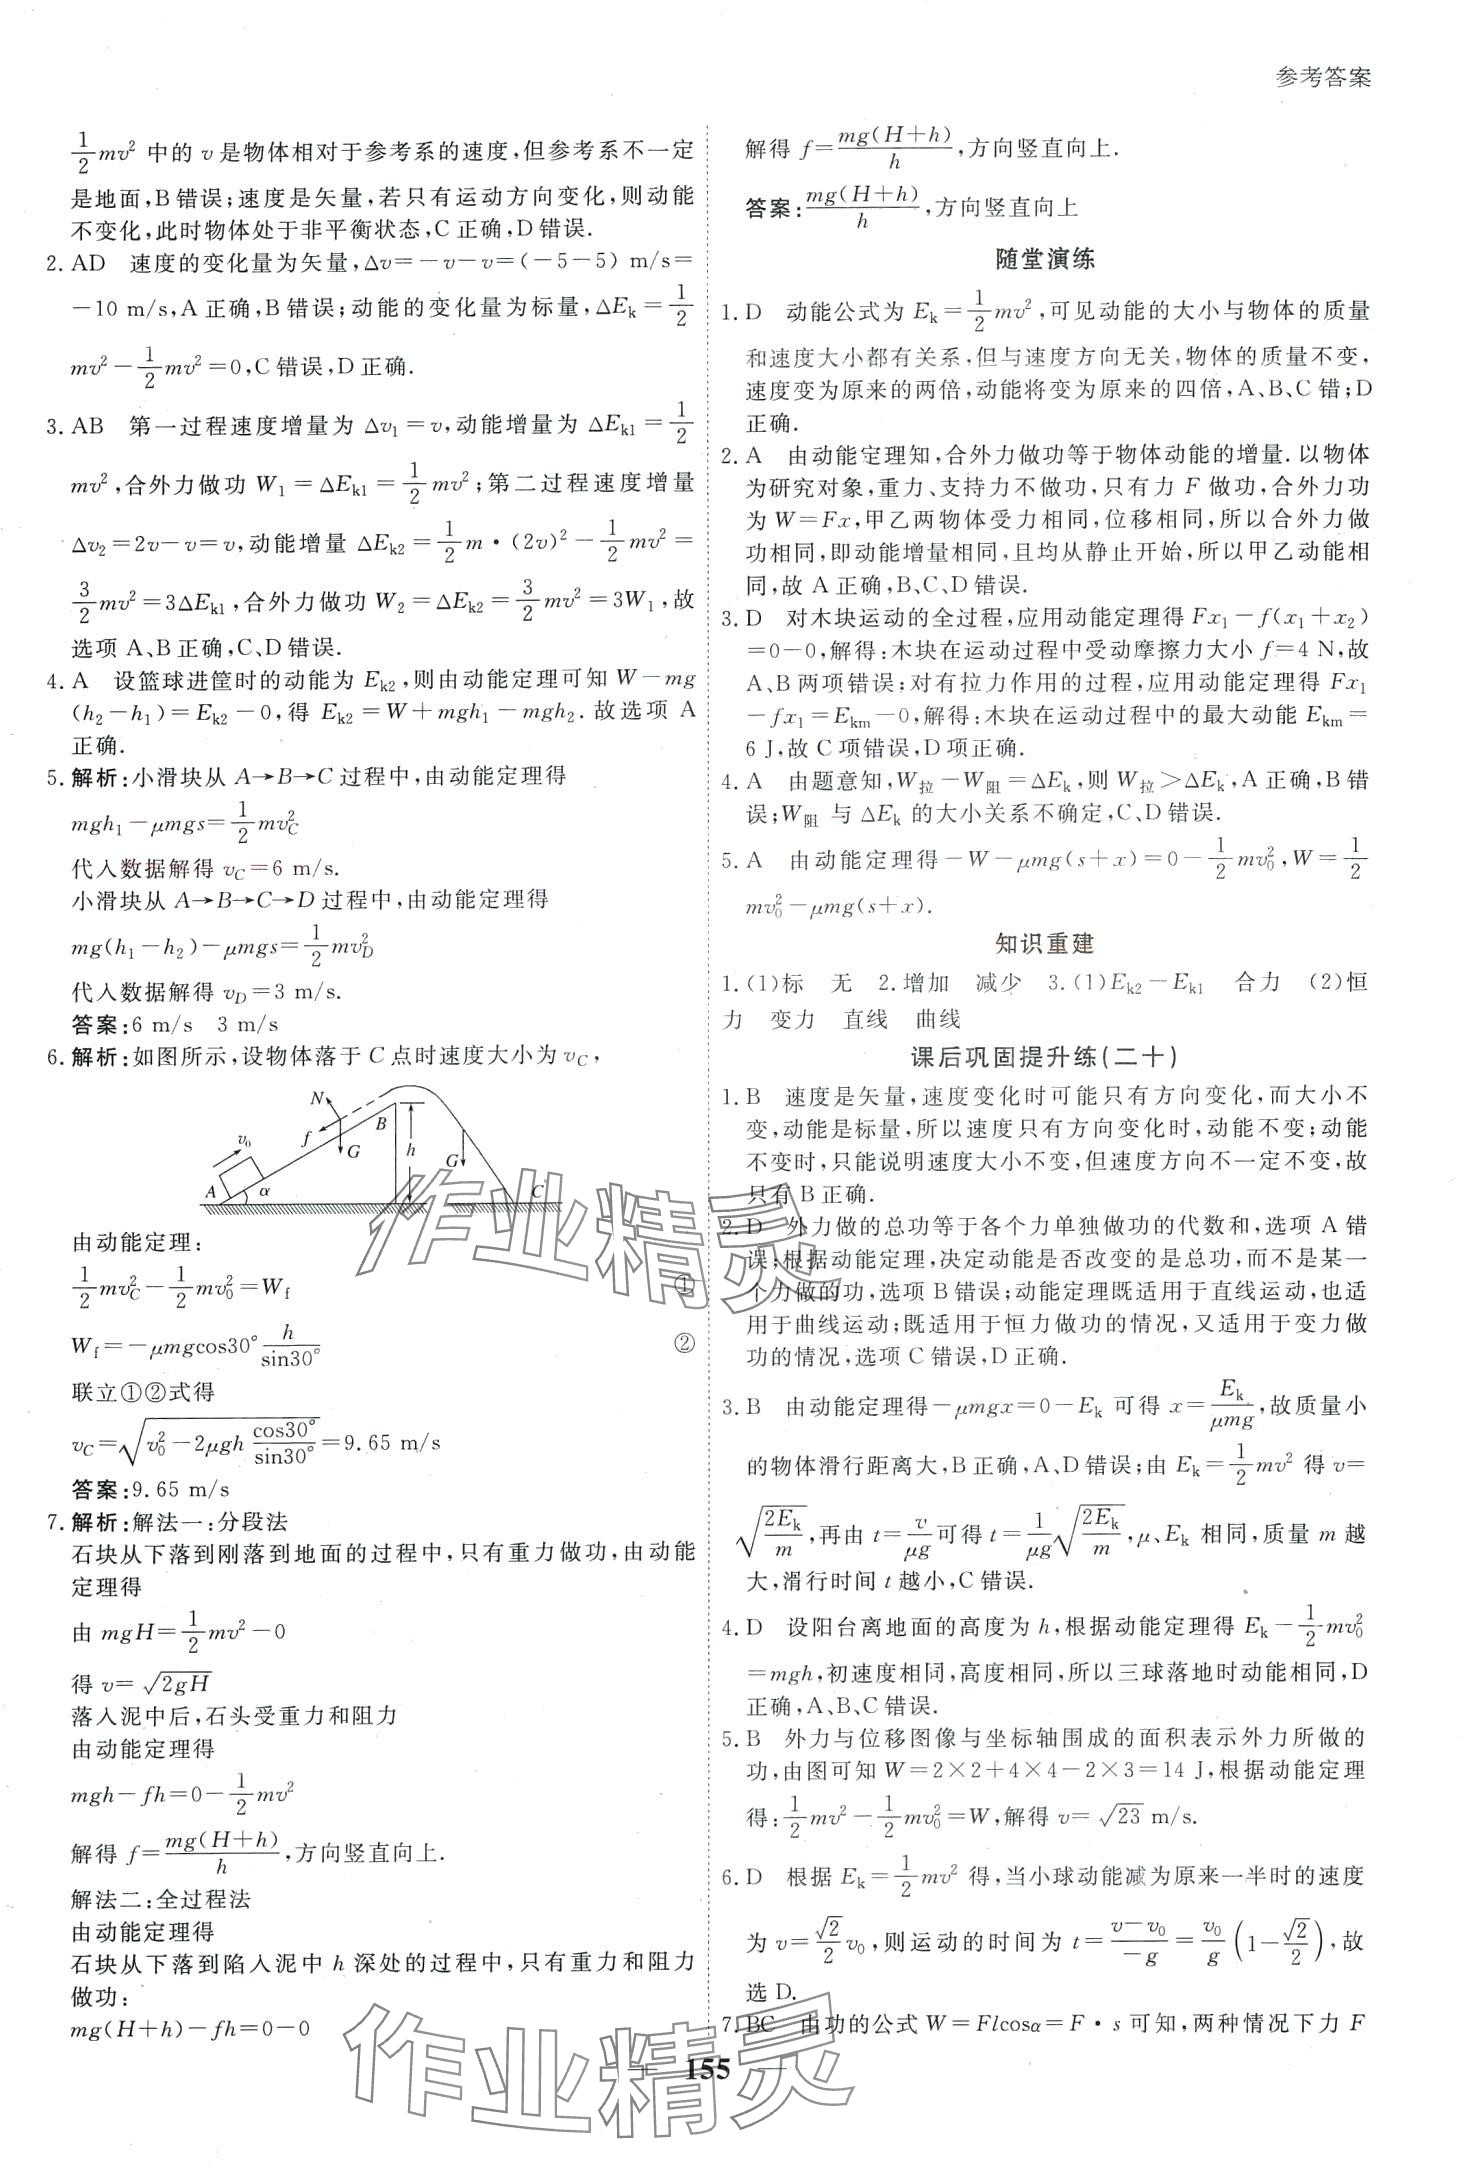 参考答案
$\frac{1}{2}mv^2$ 中的 v 是物体相对于参考系的速度,但参考系不一定
是地面,B错误;速度是矢量,若只有运动方向变化,则动能
不变化,此时物体处于非平衡状态,C正确,D错误.
2. AD 速度的变化量为矢量,Δv=-v-v=(-5-5) m/s=
-10 m/s,A正确,B错误;动能的变化量为标量,$ΔE_k=\frac{1}{2}$
$mv^2-\frac{1}{2}mv^2=0$,C错误,D正确.
3. AB 第一过程速度增量为 $Δv_1=v$,动能增量为 $ΔE_{k1}=\frac{1}{2}$
$mv^2$,合外力做功 $W_1=ΔE_{k1}=\frac{1}{2}mv^2$;第二过程速度增量
$Δv_2=2v-v=v$,动能增量 $ΔE_{k2}=\frac{1}{2}m·(2v)^2-\frac{1}{2}mv^2=$
$\frac{3}{2}mv^2=3ΔE_{k1}$,合外力做功 $W_2=ΔE_{k2}=\frac{3}{2}mv^2=3W_1$,故
选项A、B正确,C、D错误.
4. A 设篮球进筐时的动能为 $E_{k2}$,则由动能定理可知 W-mg
$(h_2-h_1)=E_{k2}-0$,得 $E_{k2}=W+mgh_1-mgh_2$.故选项A
正确.
5. 解析:小滑块从 A→B→C 过程中,由动能定理得
$mgh_1-μmgs=\frac{1}{2}mv_C^2$
代入数据解得 $v_C=6$ m/s.
小滑块从 A→B→C→D 过程中,由动能定理得
$mg(h_1-h_2)-μmgs=\frac{1}{2}mv_D^2$
代入数据解得 $v_D=3$ m/s.
答案:6 m/s 3 m/s
6. 解析:如图所示,设物体落于 C 点时速度大小为 $v_C$,
N
f
B
v₀
G
h
G
A α C
由动能定理:
$\frac{1}{2}mv_C^2-\frac{1}{2}mv_0^2=W_f$ ①
$W_f=-μmg\cos30°\frac{h}{\sin30°}$ ②
联立①②式得
$v_C=\sqrt{v_0^2-2μgh\frac{\cos30°}{\sin30°}}=9.65$ m/s
答案:9.65 m/s
7. 解析:解法一:分段法
石块从下落到刚落到地面的过程中,只有重力做功,由动能
定理得
由 $mgH=\frac{1}{2}mv^2-0$
得 $v=\sqrt{2gH}$
落入泥中后,石头受重力和阻力
由动能定理得
$mgh-fh=0-\frac{1}{2}mv^2$
解得 $f=\frac{mg(H+h)}{h}$,方向竖直向上.
解法二:全过程法
由动能定理得
石块从下落到陷入泥中 h 深处的过程中,只有重力和阻力
做功:
mg(H+h)-fh=0-0
解得 $f=\frac{mg(H+h)}{h}$,方向竖直向上.
答案:$\frac{mg(H+h)}{h}$,方向竖直向上
随堂演练
1. D 动能公式为 $E_k=\frac{1}{2}mv^2$,可见动能的大小与物体的质量
和速度大小都有关系,但与速度方向无关,物体的质量不变,
速度变为原来的两倍,动能将变为原来的四倍,A、B、C错;D
正确.
2. A 由动能定理知,合外力做功等于物体动能的增量.以物体
为研究对象,重力、支持力不做功,只有力 F 做功,合外力功
为 W=Fx,甲乙两物体受力相同,位移相同,所以合外力做
功相同,即动能增量相同,且均从静止开始,所以甲乙动能相
同,故A正确,B、C、D错误.
3. D 对木块运动的全过程,应用动能定理得 $Fx_1-f(x_1+x_2)$
=0-0,解得:木块在运动过程中受动摩擦力大小 f=4 N,故
A、B两项错误;对有拉力作用的过程,应用动能定理得 $Fx_1$
$-fx_1=E_{km}-0$,解得:木块在运动过程中的最大动能 $E_{km}=$
6 J,故C项错误,D项正确.
4. A 由题意知,$W_拉-W_阻=ΔE_k$,则 $W_拉>ΔE_k$,A正确,B错
误;$W_阻$ 与 $ΔE_k$ 的大小关系不确定,C、D错误.
5. A 由动能定理得 $-W-μmg(s+x)=0-\frac{1}{2}mv_0^2$,$W=\frac{1}{2}$
$mv_0^2-μmg(s+x)$.
知识重建
1. (1)标 无 2. 增加 减少 3. (1)$E_{k2}-E_{k1}$ 合力 (2)恒
力 变力 直线 曲线
课后巩固提升练(二十)
1. B 速度是矢量,速度变化时可能只有方向变化,而大小不
变,动能是标量,所以速度只有方向变化时,动能不变;动能
不变时,只能说明速度大小不变,但速度方向不一定不变,故
只有B正确.
2. D 外力做的总功等于各个力单独做功的代数和,选项A错
误;根据动能定理,决定动能是否改变的是总功,而不是某一
个力做的功,选项B错误;动能定理既适用于直线运动,也适
用于曲线运动;既适用于恒力做功的情况,又适用于变力做
功的情况,选项C错误,D正确.
3. B 由动能定理得 $-μmgx=0-E_k$ 可得 $x=\frac{E_k}{μmg}$,故质量小
的物体滑行距离大,B正确,A、D错误;由 $E_k=\frac{1}{2}mv^2$ 得 v=
$\sqrt{\frac{2E_k}{m}}$,再由 $t=\frac{v}{μg}$ 可得 $t=\frac{1}{μg}\sqrt{\frac{2E_k}{m}}$,μ、$E_k$ 相同,质量 m 越
大,滑行时间 t 越小,C错误.
4. D 设阳台离地面的高度为 h,根据动能定理得 $E_k-\frac{1}{2}mv_0^2$
=mgh,初速度相同,高度相同,所以三球落地时动能相同,D
正确,A、B、C错误.
5. B 外力与位移图像与坐标轴围成的面积表示外力所做的
功,由图可知 W=2×2+4×4-2×3=14 J,根据动能定理
得:$\frac{1}{2}mv^2-\frac{1}{2}mv_0^2=W$,解得 $v=\sqrt{23}$ m/s.
6. D 根据 $E_k=\frac{1}{2}mv^2$ 得,当小球动能减为原来一半时的速度
为 $v=\frac{\sqrt{2}}{2}v_0$,则运动的时间为 $t=\frac{v-v_0}{-g}=\frac{v_0}{g}\left(1-\frac{\sqrt{2}}{2}\right)$,故
选D.
7. BC 由功的公式 W=Flcosα=F·s 可知,两种情况下力 F
155
作业精灵
作业精灵